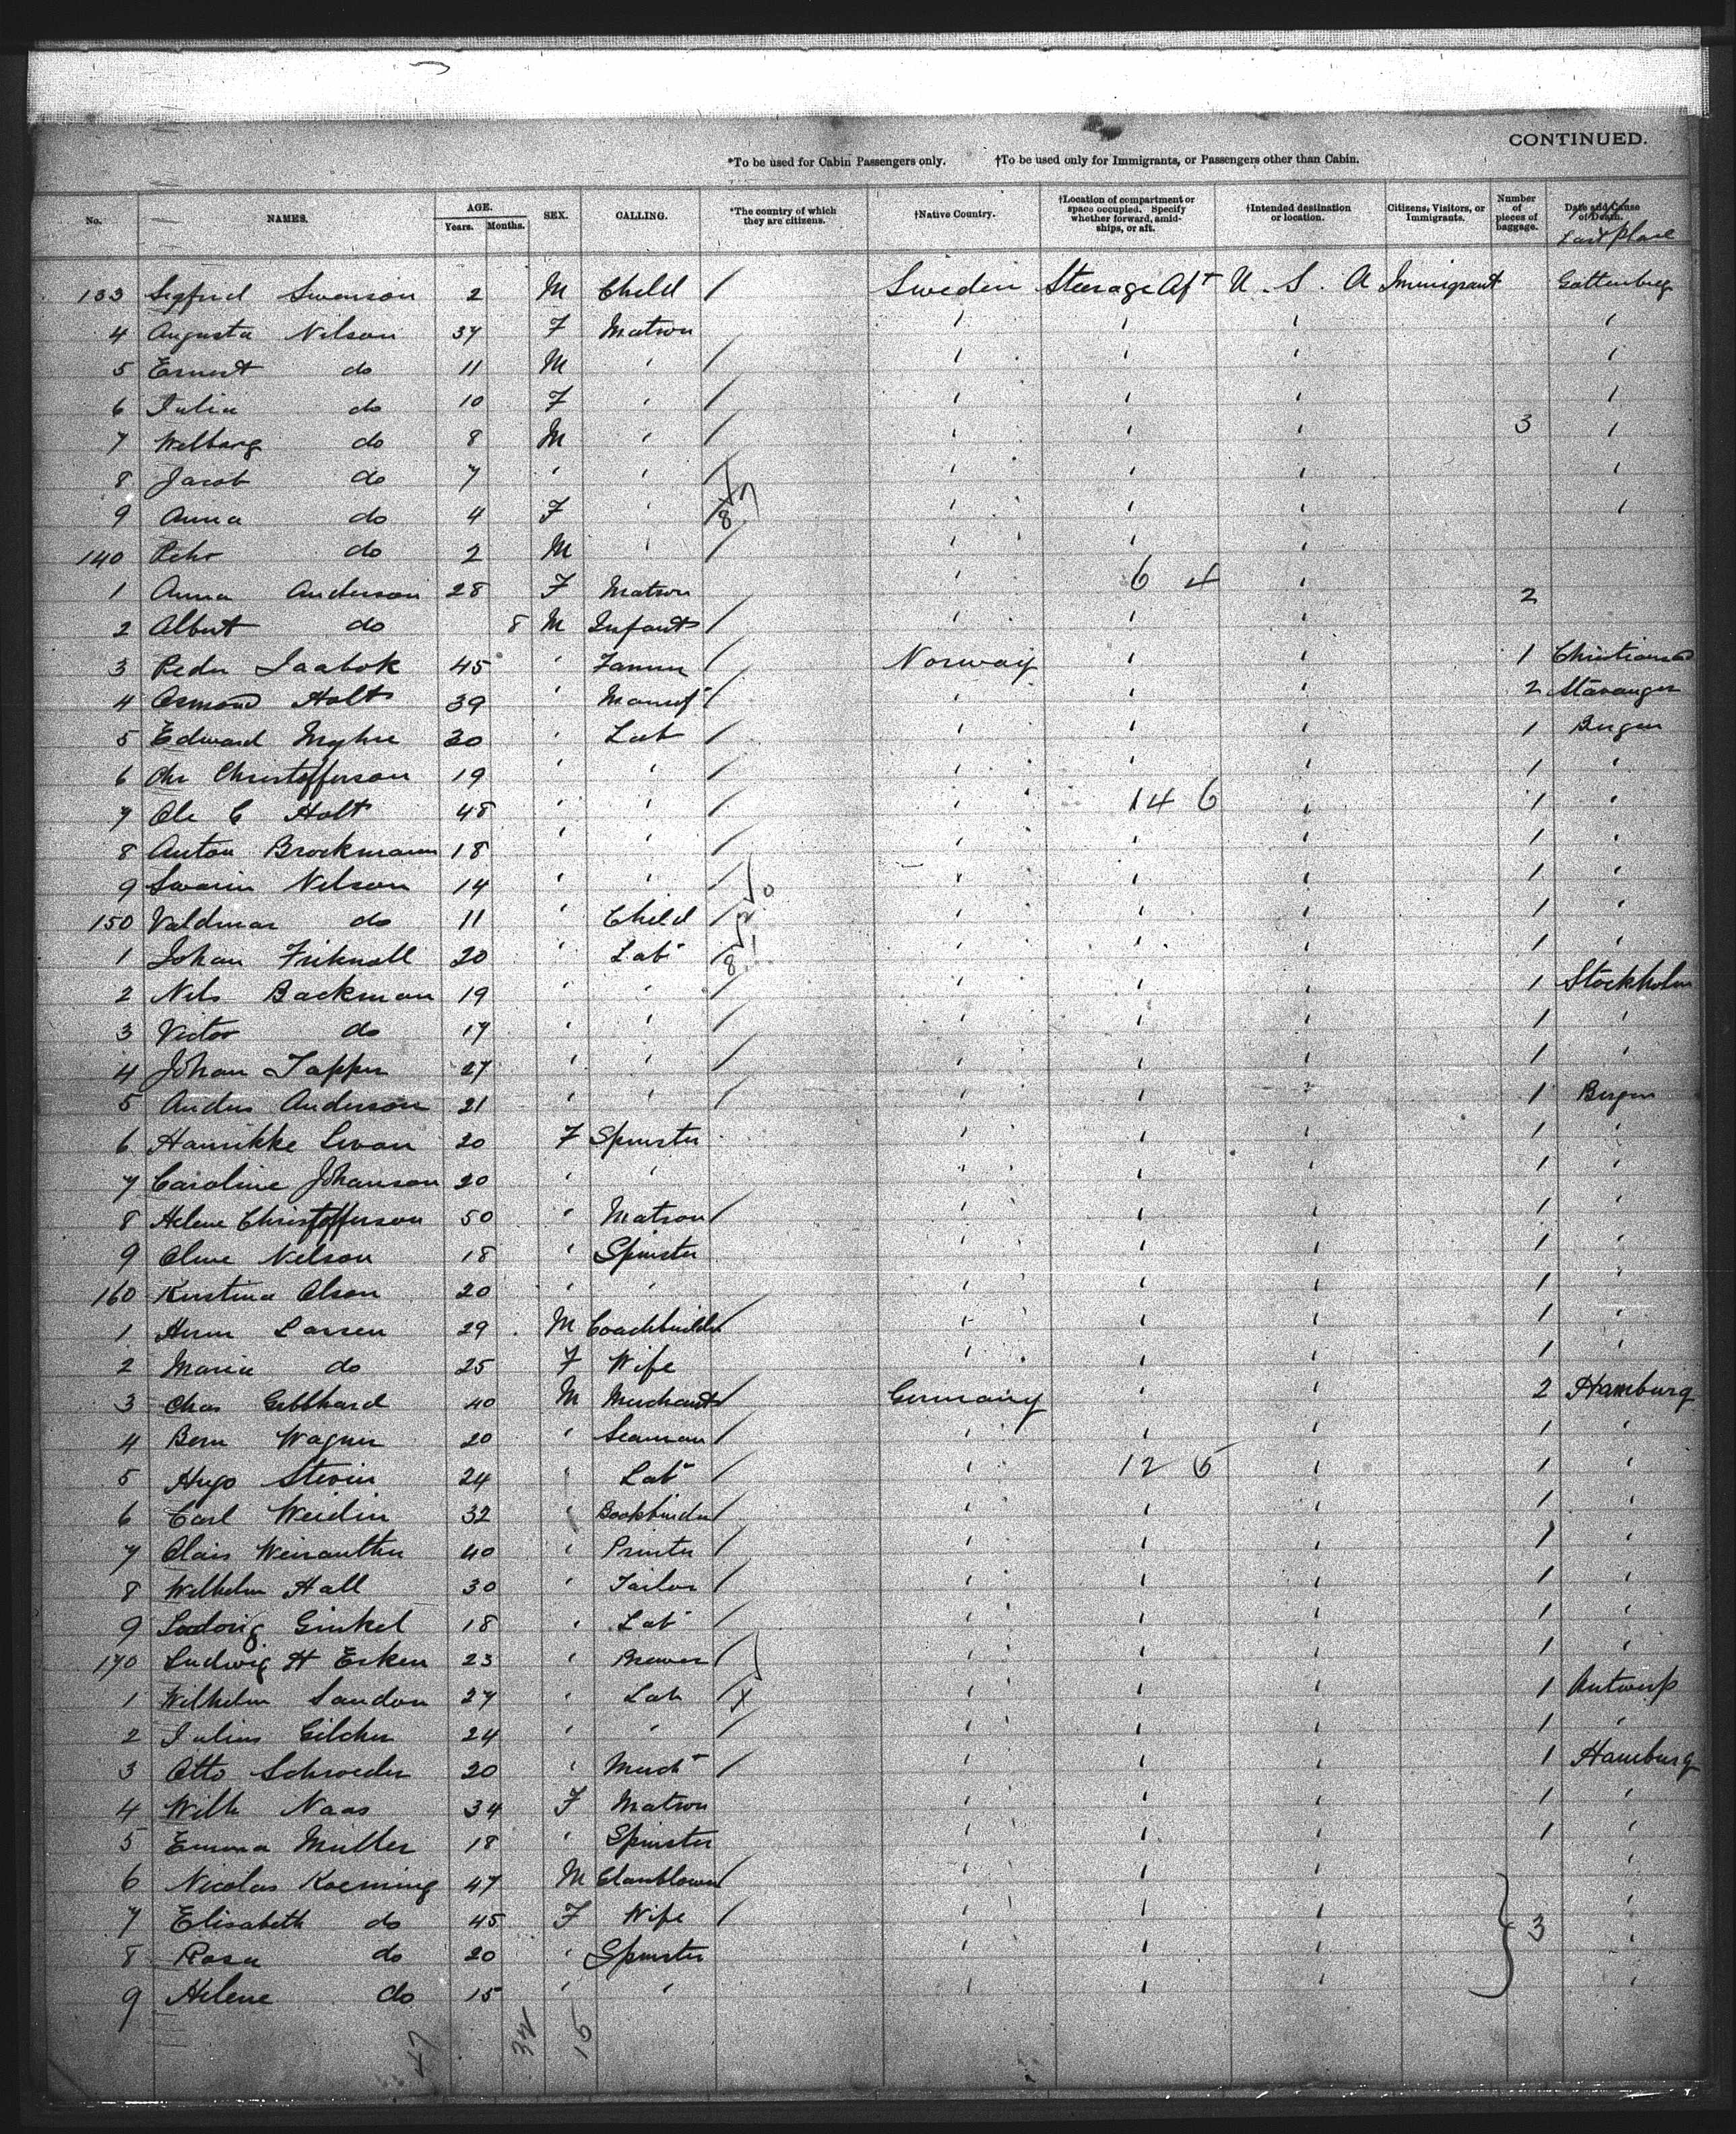 CONTINUED.
*To be used for Cabin Passengers only. †To be used only for Immigrants, or Passengers other than Cabin.
No. NAMES. AGE. Years. Months. SEX. CALLING. *The country of which they are citizens. †Native Country. †Location of compartment or space occupied. Specify whether forward, amidships, or aft. †Intended destination or location. Citizens, Visitors, or Immigrants. Number of pieces of baggage. Date and Cause of Death. Last place
133 Sigfrid Swanson 2 M Child / Sweden Steerage Aft U. S. A Immigrant Gottenburg
4 Augusta Nilson 37 F Matron ' ' ' '
5 Ernest do 11 M ' / ' ' ' '
6 Julia do 10 F ' / ' ' ' '
7 do 8 M ' / ' ' ' 3 '
8 Jacob do 7 ' ' / ' ' ' '
9 Anna do 4 F ' / ' ' ' '
140 Pehr do 2 M ' / ' ' '
1 Anna Anderson 28 F Matron ' 6 4 ' 2
2 Albert do 8 M Infant / ' ' '
3 Peder 45 ' Farmer / Norway ' ' 1 Christiansd
4 Osmond Holt 39 ' / ' ' ' 2 Stavanger
5 Edward Myhre 30 ' Lab / ' ' ' 1 Bergen
6 Chr Christofferson 19 ' ' / ' ' ' 1 '
7 Ole C Holt 48 ' ' / ' 14 6 ' 1 '
8 Anton Brockmann 18 ' ' / ' ' ' 1 '
9 Nelson 14 ' ' / ' ' ' 1 '
150 Valdmar do 11 ' Child / ' ' ' 1 '
1 Johan 20 ' Lab / ' ' ' 1 '
2 Nils Backman 19 ' ' / ' ' ' 1 Stockholm
3 Victor do 17 ' ' / ' ' ' 1 '
4 Johan Tapper 27 ' ' / ' ' ' 1 '
5 Anders Anderson 21 ' ' / ' ' ' 1 Bergen
6 Hanrikke 20 F Spinster ' ' ' 1 '
7 Caroline Johanson 20 ' ' ' ' ' 1 '
8 Helene Christofferson 50 ' Matron / ' ' ' 1 '
9 Nelson 18 ' Spinster ' ' ' 1 '
160 Kirstina Olson 20 ' ' ' ' ' 1 '
1 Herm Larsen 29 M Coachbuilder / ' ' ' 1 '
2 Maria do 25 F Wife ' ' ' 1 '
3 Chas Gebhard 40 M Merchant / Germany ' ' 2 Hamburg
4 Bern Wagner 20 ' Seaman / ' ' ' 1 '
5 Hugo 24 ' Lab / ' 12 6 ' 1 '
6 Carl Weidin 32 ' Bookbinder / ' ' ' 1 '
7 40 ' Printer / ' ' ' 1 '
8 Wilhelm Hall 30 ' Tailor / ' ' ' 1 '
9 Ludwig Ginkel 18 ' Lab / ' ' ' 1 '
170 Ludwig H Erken 23 ' Brewer / ' ' ' 1 '
1 Wilhelm Sandon 27 ' Lab / ' ' ' 1 Antwerp
2 Julius Gilcher 24 ' ' / ' ' ' 1 '
3 Otto Schroeder 20 ' Mercht / ' ' ' 1 Hamburg
4 Wilh Naas 34 F Matron ' ' ' 1 '
5 Emma Muller 18 ' Spinster ' ' ' 1 '
6 Nicolas Koenning 47 M Glassblower / ' ' ' '
7 Elisabeth do 45 F Wife / ' ' ' 3 '
8 Rosa do 20 ' Spinster ' ' ' '
9 Helene do 15 ' ' ' ' ' '
47 32 15